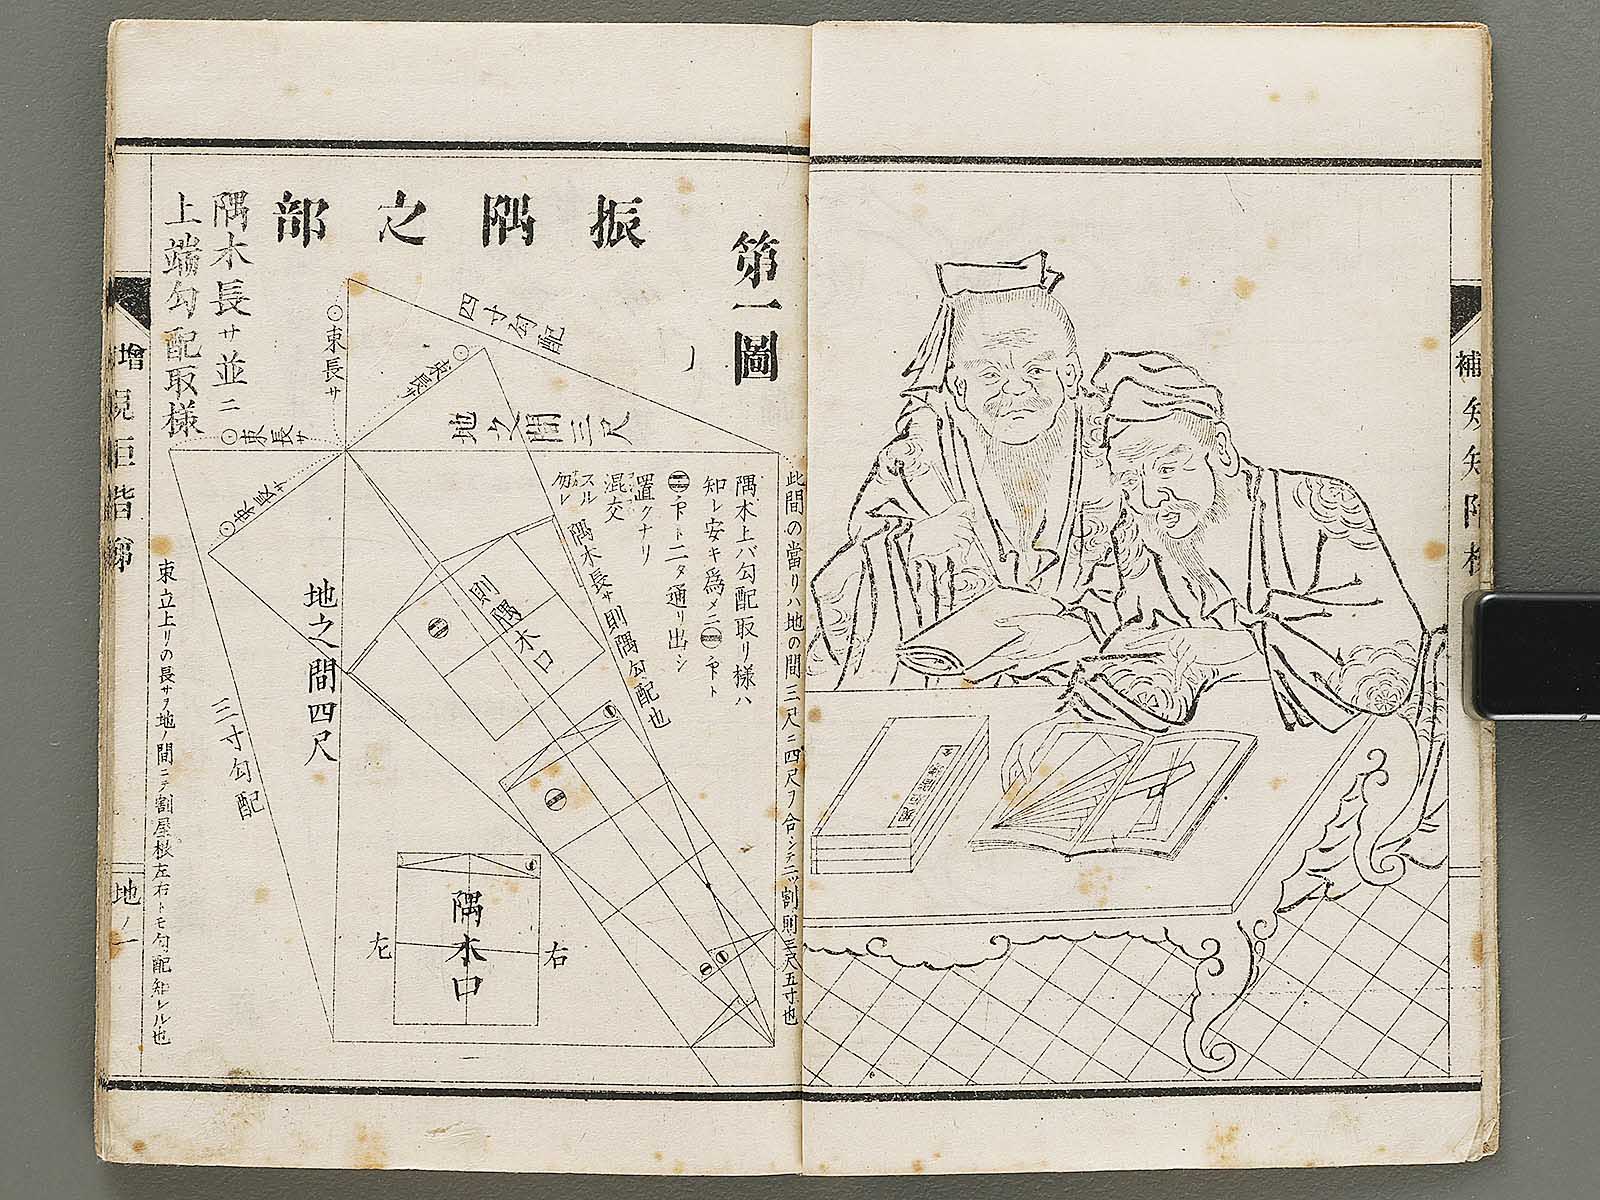 第一圖
振隅之部
隅木長サ並ニ
上端勾配取様
四寸勾配
地之間三尺
此間の當りハ地の間三尺ニ四尺ヲ合シテ二ツ割則三尺五寸也
隅木上バ勾配取リ様ハ
知レ安キ爲メニ
二タ通リ出シ
置クナリ
混交
スル
勿レ
隅木長サ則隅勾配也
則隅木口
束長サ
束長サ
束長サ
束長サ
地之間四尺
三寸勾配
隅木口
右
左
束立上リの長サヲ地ノ間ニテ割屋根左右トモ勾配知レル也
増
地ノ一
補